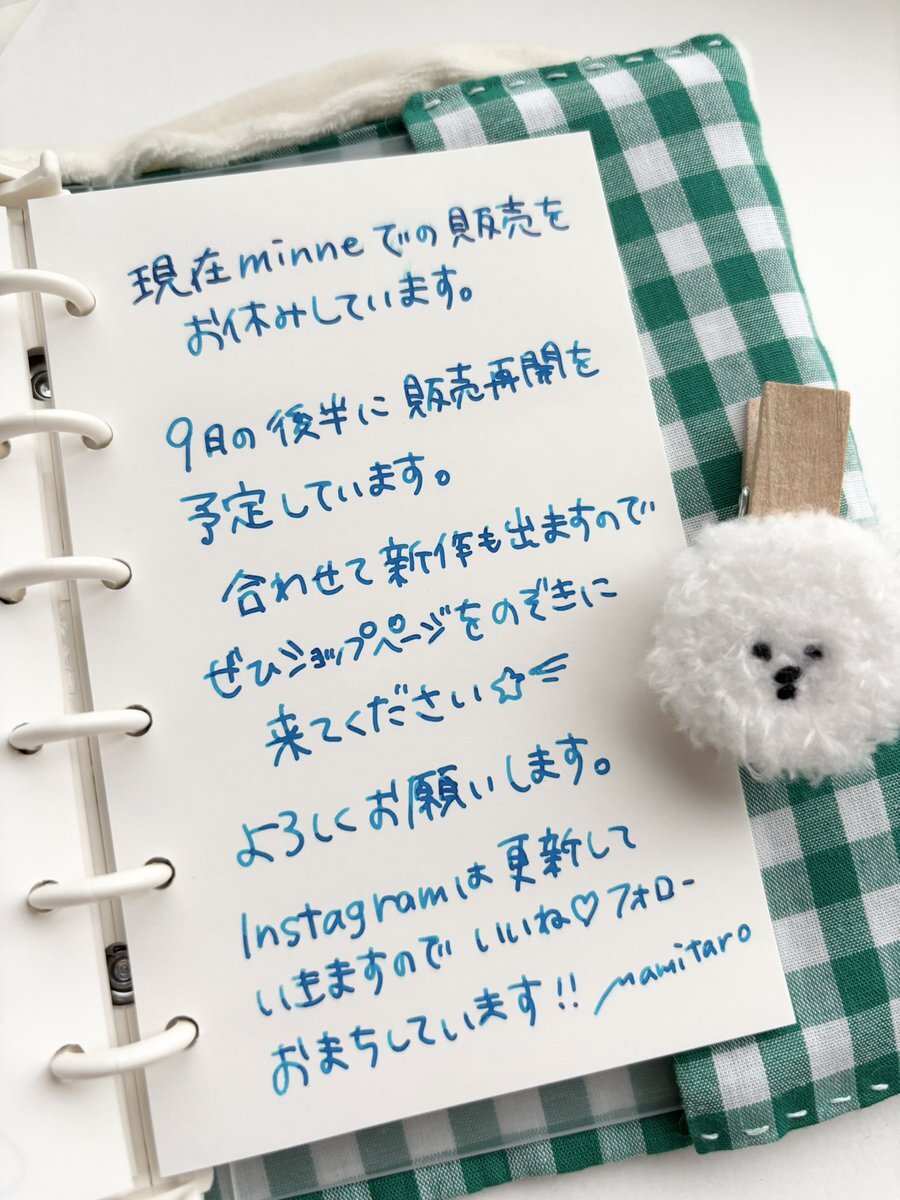 現在minneでの販売を
お休みしています。
9月の後半に販売再開を
予定しています。
合わせて新作も出ますので
ぜひショップページをのぞきに
来てください☆
よろしくお願いします。
Instagramは更新して
いきますのでいいね♡フォロー
おまちしています!! mamitaro